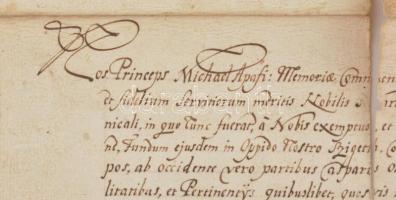 Nos Princeps Michael Apafi: Memoriæ Com
et fidelium servitiorum meritis Nobilis
nicali, in quo tunc fuerat, à Nobis exemptus, et
nd, Fundum ejusdem in Oppido Nostro
pos, ab occidente vero partibus
litatibus, et Pertinentijs quibuslibet, quo